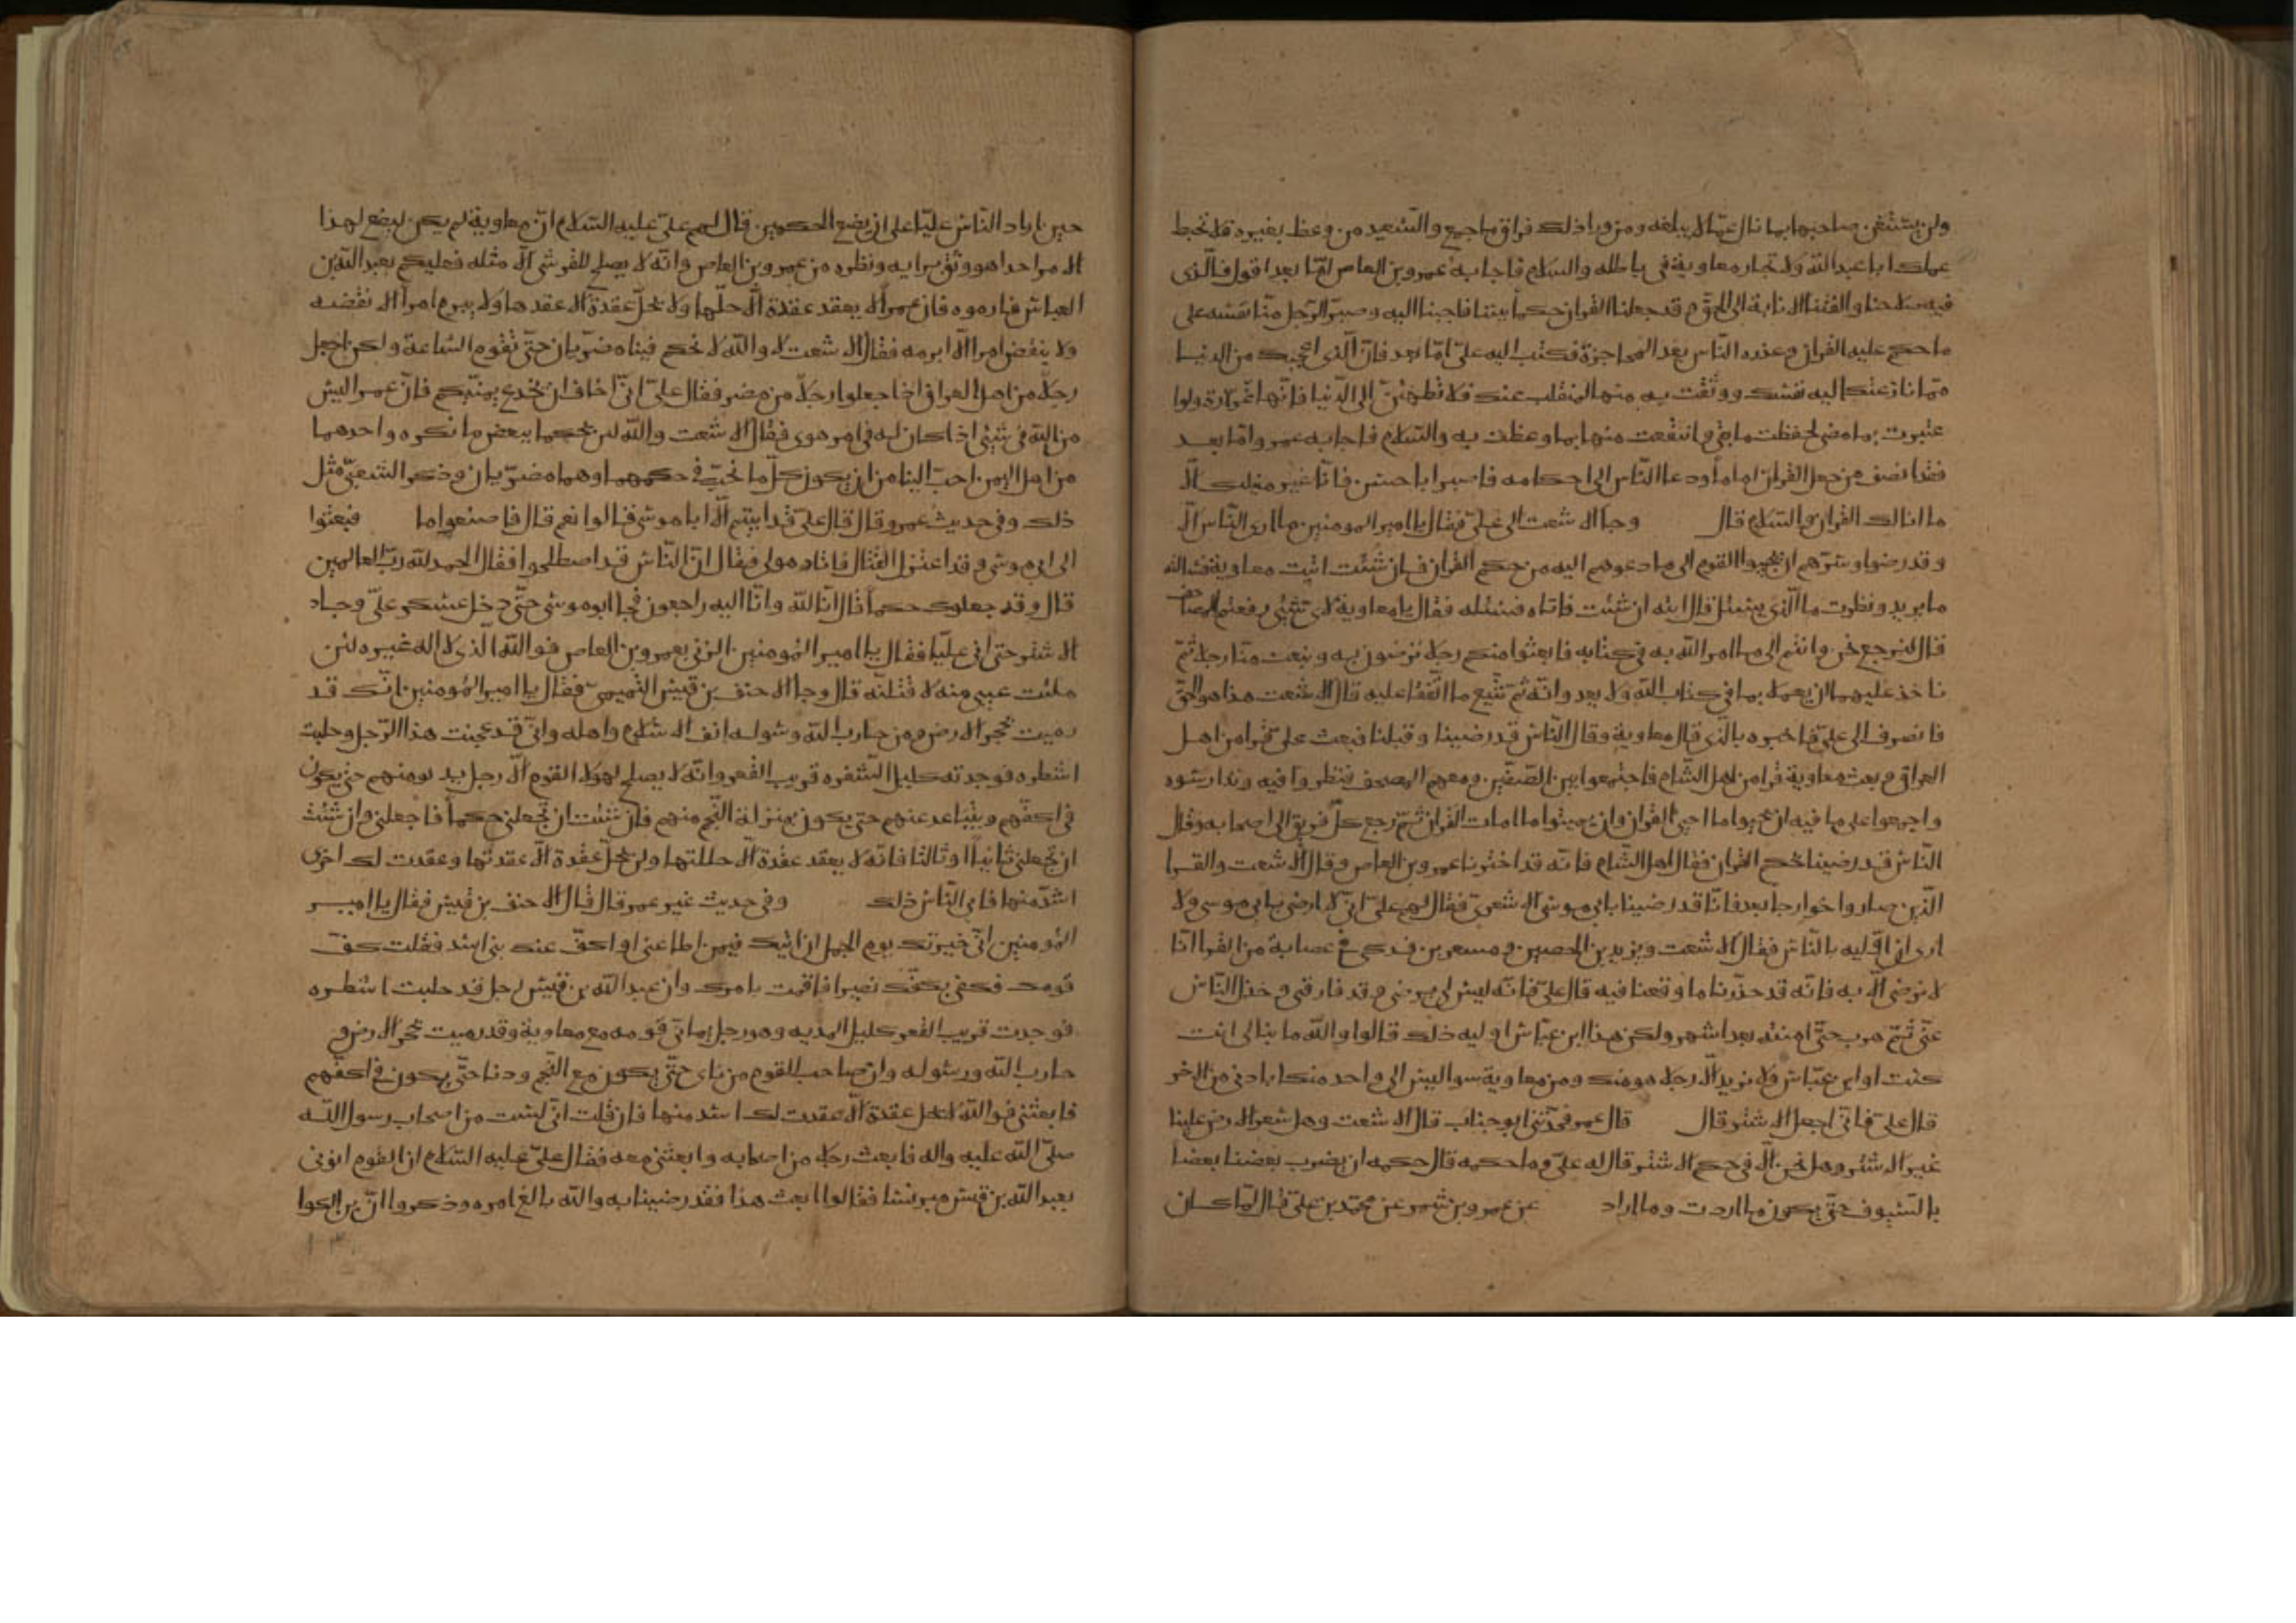 ولن يستغن صاحبها بما نال عما لا يبلغه ومن ورا ذلك فراق ما جمع والسعيد من وعظ بغيره فلا تحبط
عملك ابا عبد الله ولا تجار معاوية في باطله والسلام فاجابه عمرو بن العاص اما بعد اقول فالذي
فيه صلاحنا والفتنا الانابة الى الحق وقد جعلنا القران حكما بيننا فاجبنا اليه وصبر الرجل منا نفسه على
ما حكم عليه القران وعذره الناس بعد المحاجزة فكتب اليه علي اما بعد فان الذي اعجبك من الدنيا
مما نازعتك اليه نفسك ووثقت به منها لمنقلب عنك فلا تطمئن الى الدنيا فانها غرارة ولو ا
عتبرت بما مضى لحفظت ما بقي وانتفعت منها بما وعظت به والسلام فاجابه عمرو اما بعد
فقد انصف من جعل القران اماما ودعا الناس الى احكامه فاصبر ابا حسن فانا غير منيلك الا
ما انالك القران والسلام قال وجا الاشعت الى علي فقال يا امير المومنين ما ارى الناس الا
وقد رضوا وسرهم ان يجيبوا القوم الى ما دعوهم اليه من حكم القران فان شئت اتيت معاوية فسالته
ما يريد ونظرت ما الذي يسئل قال ايته ان شئت فاتاه فسئله فقال يا معاوية لاي شئ رفعتم المصاحف
قال لنرجع نحن وانتم الى ما امر الله به في كتابه فابعثوا منكم رجلا ترضون به ونبعث منا رجلا ثم
ناخذ عليهما ان يعملا بما في كتاب الله ولا يعدوانه ثم نتبع ما اتفقا عليه قال الاشعت هذا هو الحق
فانصرف الى علي فاخبره بالذي قال معاوية وقال الناس قد رضينا وقبلنا فبعث علي قرا من اهل
العراق وبعث معاوية قرا من اهل الشام فاجتمعوا بين الصفين ومعهم المصحف فنظروا فيه وتدارسوه
واجمعوا على ما فيه ان يحيوا ما احيى القران وان يميتوا ما امات القران ثم رجع كل فريق الى اصحابه وقال
الناس قد رضينا بحكم القران فقال اهل الشام فانه قد اخترنا عمرو بن العاص وقال الاشعت والقرا
الذين صاروا خوارجا بعد فانا قد رضينا بابي موسى الاشعري فقال لهم علي اني لا ارضى بابي موسى ولا
ارى ان اوليه بالناس فقال الاشعت ويزيد بن الحصين ومسعر بن فدكي في عصابة من القرا انا
لا نرضى الا به فانه قد حذرنا ما وقعنا فيه قال علي فانه ليس لي برضى وقد فارقني وخذل الناس
عني ثم هرب حتى امنته بعد اشهر ولكن هذا ابن عباس اوليه ذلك قالوا والله ما نبالي انت
كنت او ابن عباس ولا نريد الا رجلا هو منك ومن معاوية سوا ليس الى واحد منكما بادنى من الاخر
قال علي فاني اجعل الاشتر قال قال عمر فحدثني ابو جناب قال الاشعت وهل سعر الارض علينا
غير الاشتر وهل نحن الا في حكم الاشتر قال له علي وما حكمه قال حكمه ان يضرب بعضنا بعضا
بالسيوف حتى يكون ما اردت وما اراد عن عمرو بن شمر عن محمد بن علي قال لما كان
حين اراد الناس عليا على ان يضع الحكمين قال لهم علي عليه السلام ان معاوية لم يكن ليضع لهذا
الامر احدا هو وثق برايه ونظره من عمرو بن العاص وانه لا يصلح للقرشي الا مثله فعليكم بعبد الله بن
العباس فارموه فان عمرا لا يعقد عقدة الا حلها ولا يحل عقدة الا عقدها ولا يبرم امرا الا نقضه
ولا ينقض امرا الا ابرمه فقال الاشعت لا والله لا نحكم فينا مضريان حتى تقوم الساعة ولكن اجعل
رجلا من اهل العراق اذا جعلوا رجلا من مضر فقال علي اني اخاف ان يخدع يمنيكم فان عمرا ليس
من الله في شئ اذا كان له في امر هوى فقال الاشعت والله لئن يحكما ببعض ما نكره واحدهما
من اهل اليمن احب الينا من ان يكون كل ما نحب في حكمهما وهما مضريان وذكر الشعبي مثل
ذلك وفي حديث عمرو قال قال علي قد ابيتم الا ابا موسى قالوا نعم قال فاصنعوا ما فبعثوا
الى ابي موسى وقد اعتزل القتال فاتاه مولى فقال ان الناس قد اصطلحوا فقال الحمد لله رب العالمين
قال وقد جعلوك حكما قال انا لله وانا اليه راجعون فجا ابو موسى حتى دخل عسكر علي وجاد
الاشتر حتى اتى عليا فقال يا امير المومنين الزني بعمرو بن العاص فوالله الذي لا اله غيره لئن
ملئت عيني منه لاقتلنه قال وجا الاحنف بن قيس التميمي فقال يا امير المومنين انك قد
رميت بحجر الارض ومن حارب الله وسوله انف الاسلام واهله واني قد عجنت هذا الرجل وحلبت
اشطره فوجدته كليل الشفره قريب القعر وانه لا يصلح لهولا القوم الا رجل يدنو منهم حتى يكون
في اكفهم ويتباعد عنهم حتى يكون بمنزلة النجم منهم فان شئت ان تجعلني حكما فاجعلني وان شئت
ان تجعلني ثانيا او ثالثا فانه لا يعقد عقدة الا حللتها ولن يحل عقدة الا عقدتها وعقدت لك اخرى
اشد منها فابى الناس ذلك وفي حديث غير عمر قال قال الاحنف بن قيس فقال يا امير
المومنين اني خيرتك يوم الجمل ان اتيك فيمن اطاعني او اكف عنك بني سعد فقلت كف
قومك فكفى بكفك نصيرا فاقمت بامرك وان عبد الله بن قيس رجل قد حلبت اشطره
فوجدت قريب القعر كليل المديه وهو رجل يماني قومه مع معاوية وقد رميت بحجر الارض و
حارب الله ورسوله وان صاحب القوم من ناى حتى يكون مع النجم ودنا حتى يكون في اكفهم
فابعثني فوالله لا يحل عقدة الا عقدت لك اشد منها فان قلت اني لست من اصحاب رسول الله
صلى الله عليه واله فابعث رجلا من اصحابه وابعثني معه فقال علي عليه السلام ان القوم اتوني
بعبد الله بن قيس مبرنسا فقالوا ابعث هذا فقد رضينا به والله بالغ امره وذكروا ان بن الكوا